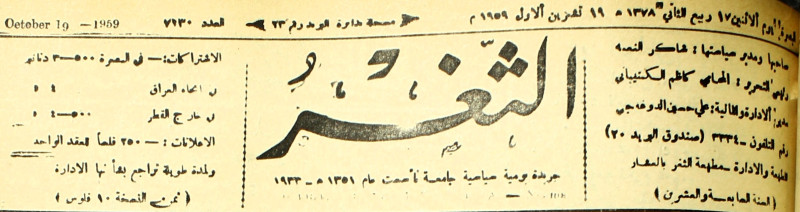 البصرة: يوم الاثنين ١٧ ربيع الثاني ١٣٧٨ ه ١٩ تشرين الاول ١٩٥٩ م
مسجلة بدائرة البريد رقم ٢٣
العدد ٧١٣٠
October 19 -1959
صاحبها ومدير سياستها : شاكر النعمه
رئيس التحرير : المحامي كاظم
مدير الادارة والمالية : علي حسين
رقم التلفون - ٣٣٣٤ (صندوق البريد ٢٠)
الطبعة والادارة - مطبعة الثغر بالعشار
(السنة السابعة والعشرين)
الثغر
جريدة يومية سياسية جامعة تأسست عام ١٣٥١ ه - ١٩٣٣
الاشتراكات :- في البصرة ٣-٥٠٠ دنانير
في انحاء العراق ٤
في خارج القطر ٤-٥٠٠
الاعلانات :- ٢٥٠ فلساً للعقد الواحد
ولمدة طويلة تراجع بشأنها الادارة
(ثمن النسخة ١٠ فلوس)